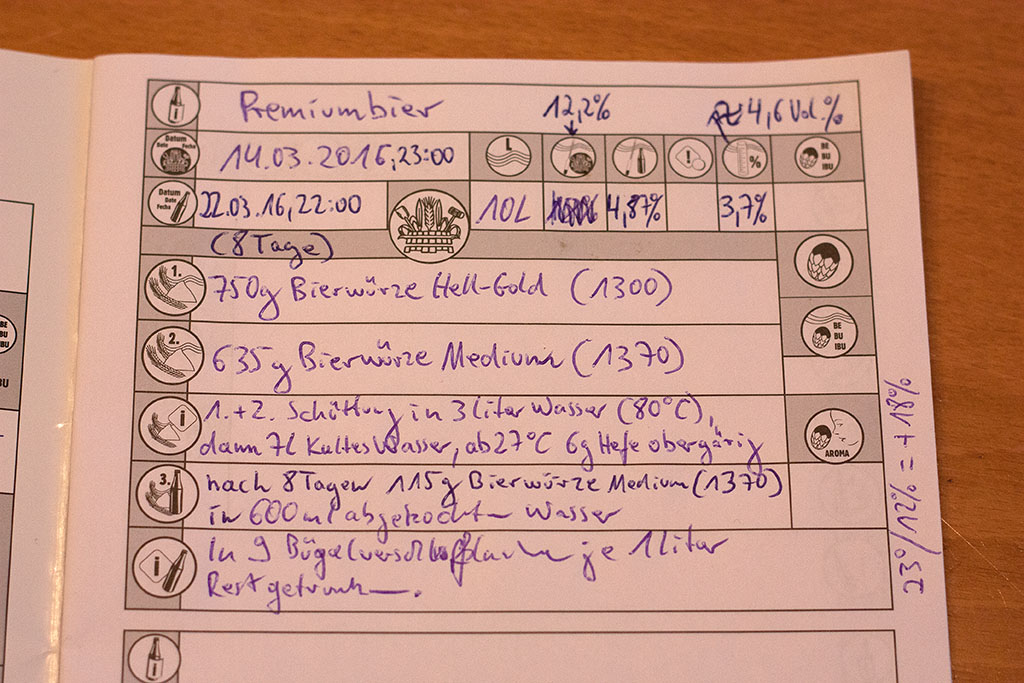 Premiumbier 12,2% ≈ 4,6 Vol.%
Datum Date Fecha 14.03.2016, 23:00 L % BE BU IBU
Datum Date Fecha 22.03.16, 22:00 10L 4,87% 3,7%
(8 Tage)
1. 750g Bierwürze Hell-Gold (1300)
BE BU IBU
2. 635g Bierwürze Medium (1370)
i 1.+2. Schüttung in 3 liter Wasser (80°C),
dann 7l Kaltes Wasser, ab 27°C 6g Hefe obergärig
AROMA
3. nach 8 Tagen 115g Bierwürze Medium (1370)
in 600ml abgekochten Wasser
i In 9 Bügelverschlußflaschen je 1 liter
Rest getrunken.
23°/12% = +18%
BE BU IBU
BU
i